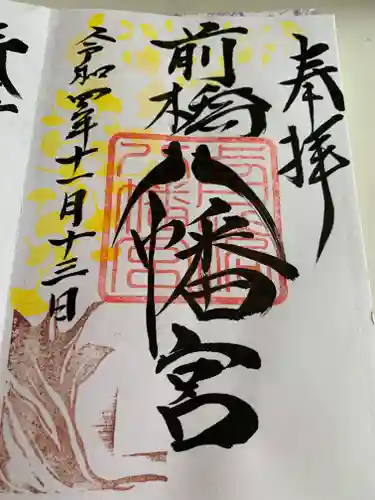 奉拝
前橋八幡宮
令和四年十一日十三日